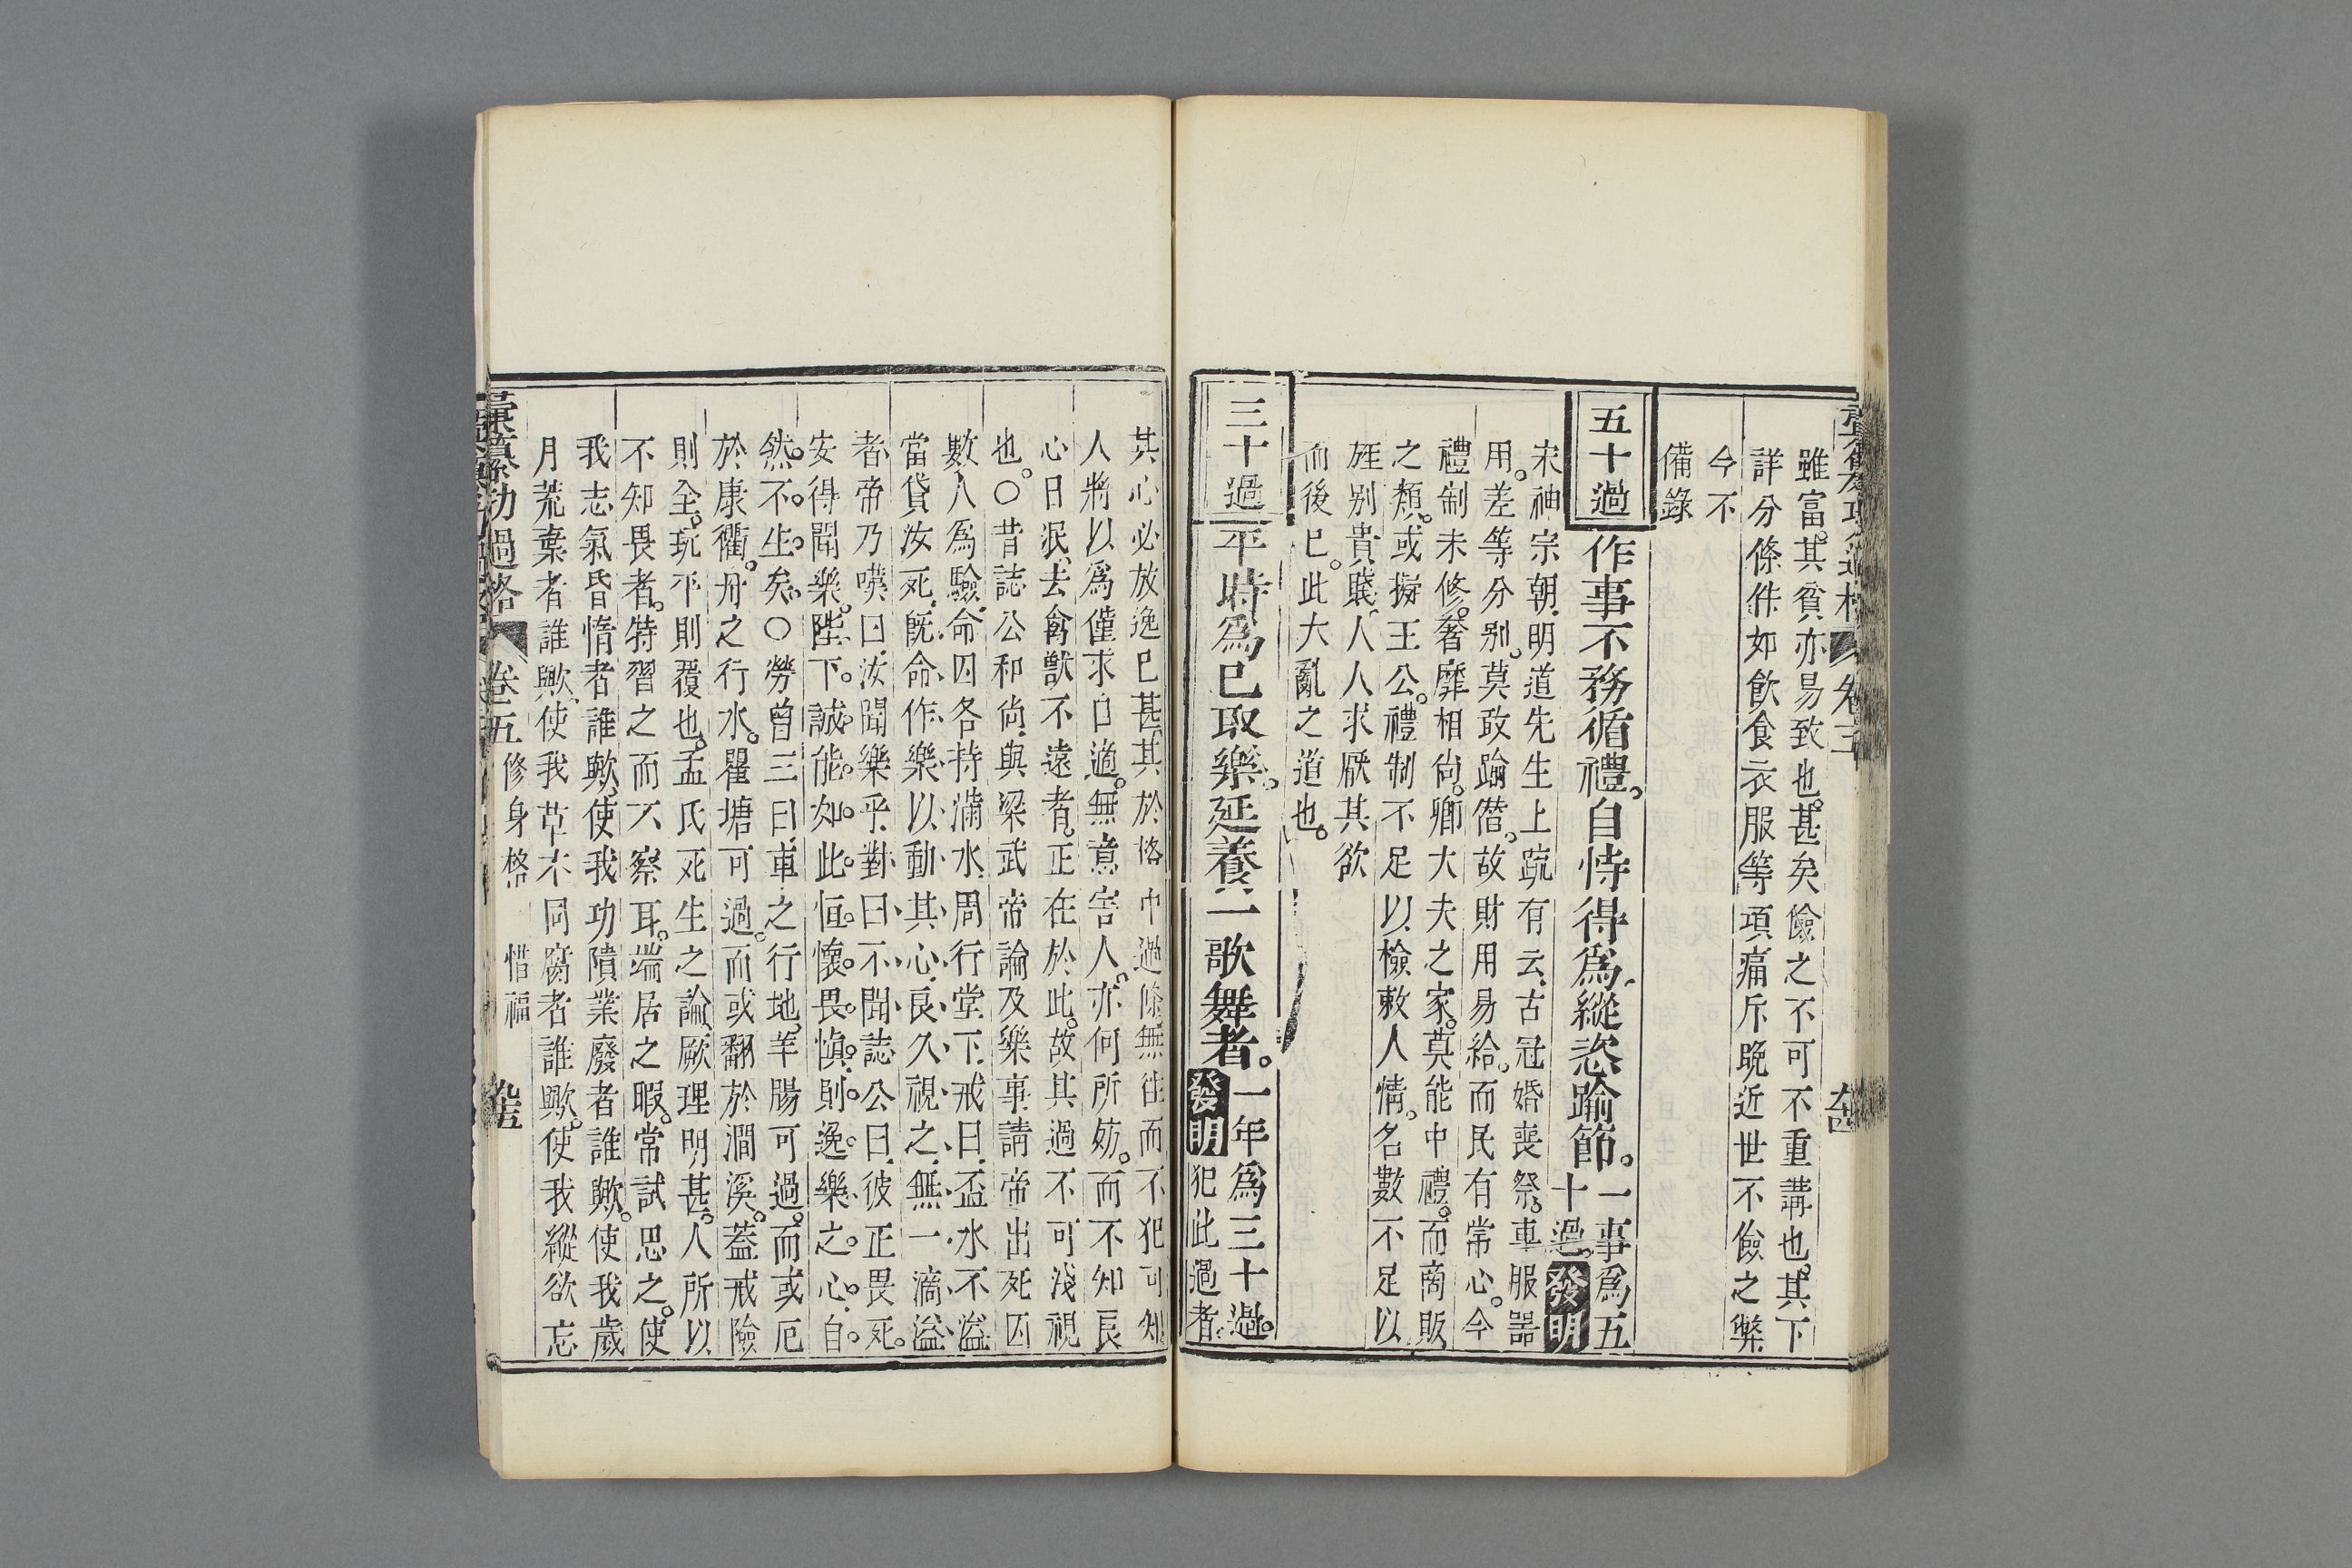 雖富。其貧亦易致也。甚矣儉之不可不重講也。其下
詳分條件如飲食衣服等項痛斥晚近世不儉之弊
今不
備錄
五十過
作事不務循禮。自恃得爲。縱恣踰節。一事爲五
十過。發明
宋神宗朝。明道先生上疏有云。古冠婚喪祭。車服器
用。差等分别。莫敢踰僭。故財用易給。而民有常心。今
禮制未修。奢靡相尚。卿大夫之家。莫能中禮。而商販
之類。或擬王公。禮制不足以檢敕人情。名數不足以
旌别貴賤。人人求厭其欲
而後已。此大亂之道也。
三十過
平時爲已取樂。延養一歌舞者。一年爲三十過。
發明犯此過者。
其心必放逸已甚。其於格中過條無往而不犯可知。
人將以爲僅求自適。無意害人。亦何所妨。而不知良
心日泯。去禽獸不遠者。正在於此。故其過不可淺視
也。〇昔誌公和尚。與梁武帝論及樂事。請帝出死囚
數人爲驗。命囚各持滿水。周行堂下。戒曰。盃水不溢
當貸汝死。旣命作樂以動其心。良久視之。無一滴溢
者。帝乃嘆曰。汝聞樂乎。對曰。不聞。誌公曰。彼正畏死。
安得聞樂。陛下。誠能如此。恒懷畏愼。則逸樂之心。自
然。不。生。矣。〇勞曾三曰。車之行地。羊腸可過。而或厄
於康衢。舟之行水。瞿塘可過。而或翻於澗溪。蓋戒險
則全。玩平則覆也。孟氏死生之論。厥理明甚。人所以
不知畏者。特習之而不察耳。端居之暇。常試思之。使
我志氣昏惰者誰歟。使我功隳業廢者誰歟。使我歲
月荒棄者誰歟。使我草木同腐者誰歟。使我縱欲忘
彙纂功過格
卷五
修身格
惜福